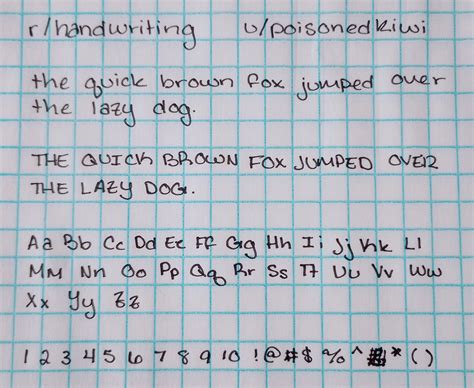 r/handwriting u/poisonedkiwi
the quick brown fox jumped over
the lazy dog.
THE QUICK BROWN FOX JUMPED OVER
THE LAZY DOG.
Aa Bb Cc Dd Ee Ff Gg Hh Ii Jj Kk Ll
Mm Nn Oo Pp Qq Rr Ss Tt Uu Vv Ww
Xx Yy Zz
1 2 3 4 5 6 7 8 9 10 ! @ # $ % ^ * ( )